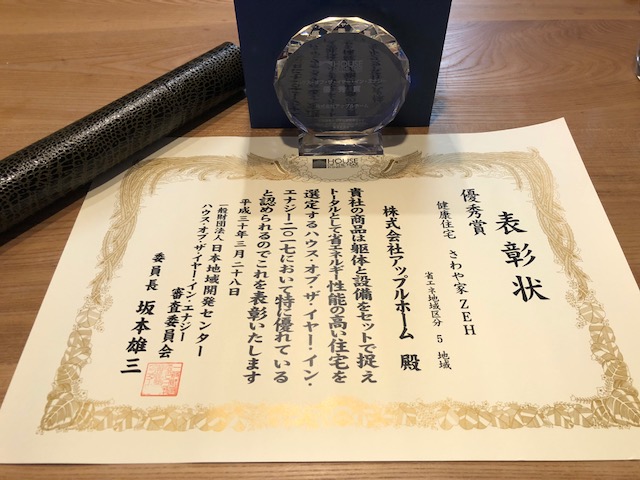 HOUSE
表彰状
優秀賞
健康住宅 さわや家 ZEH
省エネ地域区分 5 地域
株式会社アップルホーム 殿
貴社の商品は躯体と設備をセットで捉え
トータルとして省エネルギー性能の高い住宅を
選定するハウス・オブ・ザ・イヤー・イン・
エナジー二〇一七において特に優れている
と認められるのでこれを表彰いたします
平成三十年三月二十八日
一般財団法人 日本地域開発センター
ハウス・オブ・ザ・イヤー・イン・エナジー
審査委員会
委員長 坂本雄三